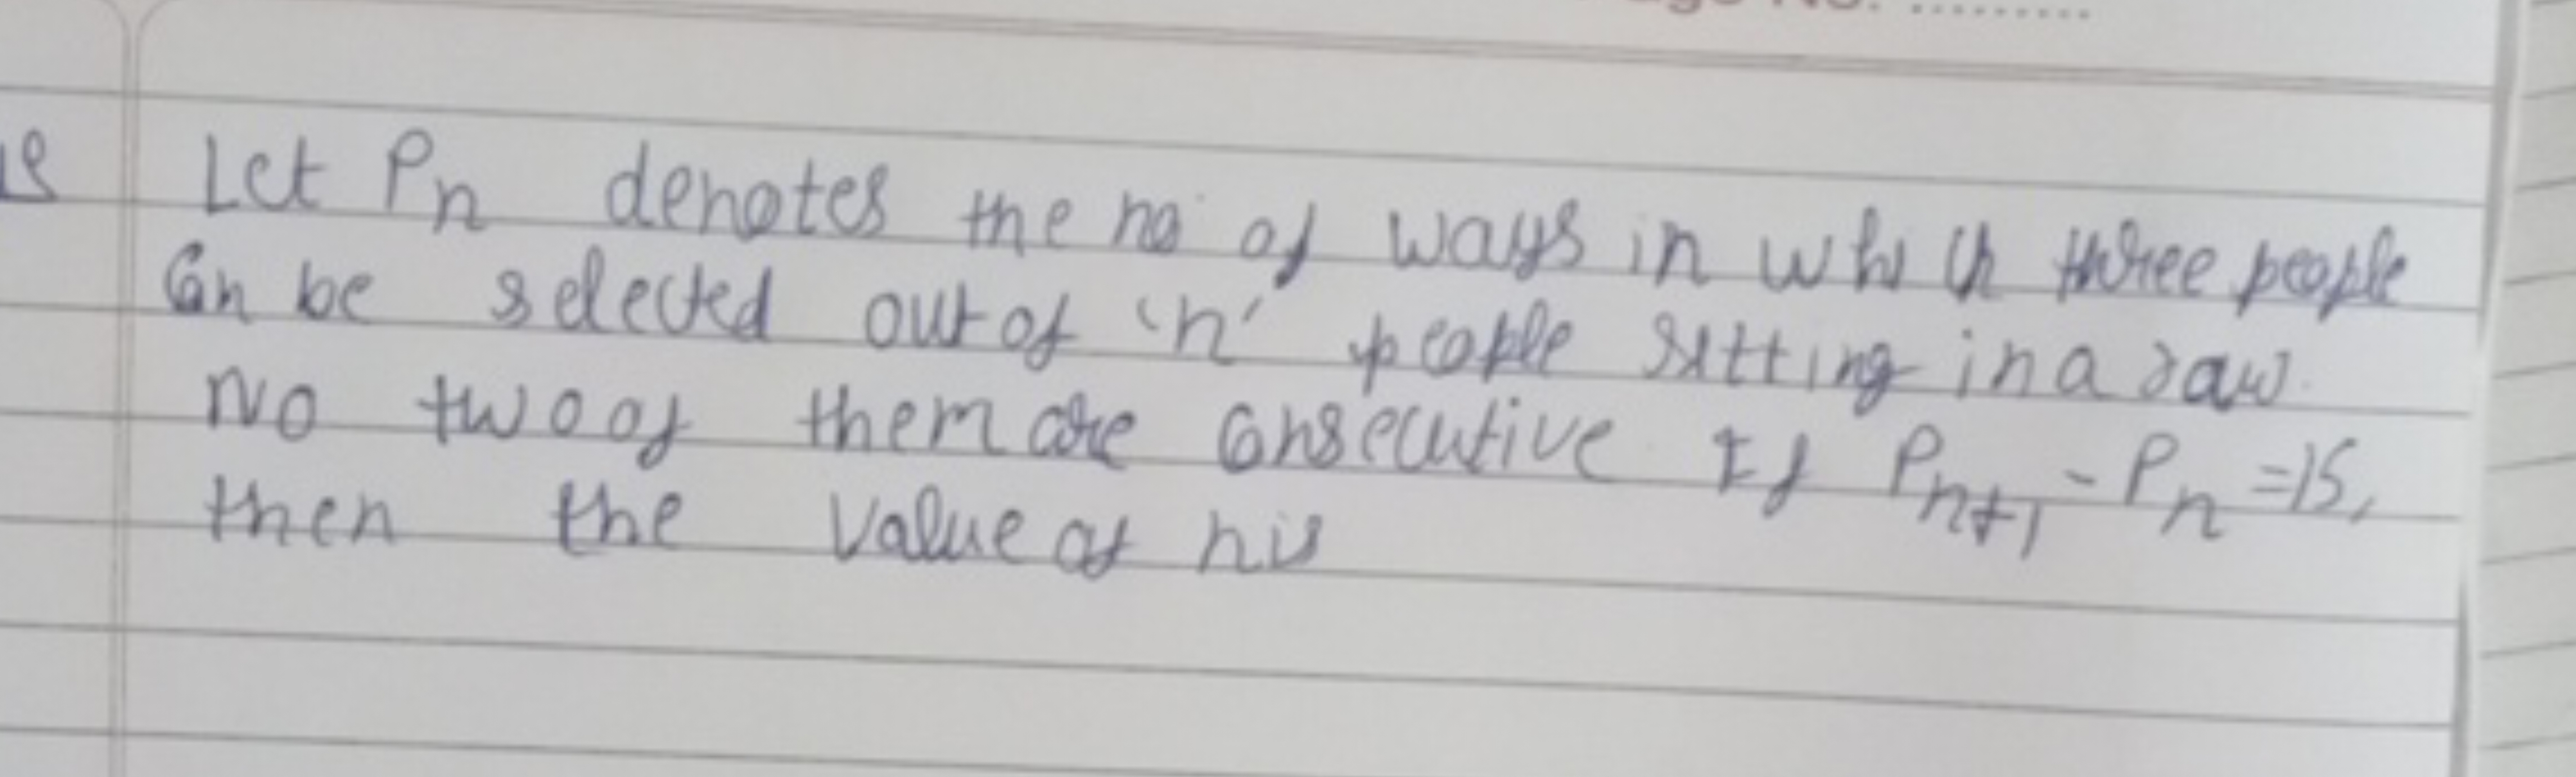 Page No. .........
Let Pn denotes the no of ways in which three people
Can be selected out of 'n' people sitting in a raw.
No two of them are Consecutive If Pn+1 - Pn = 15,
then the value of n is